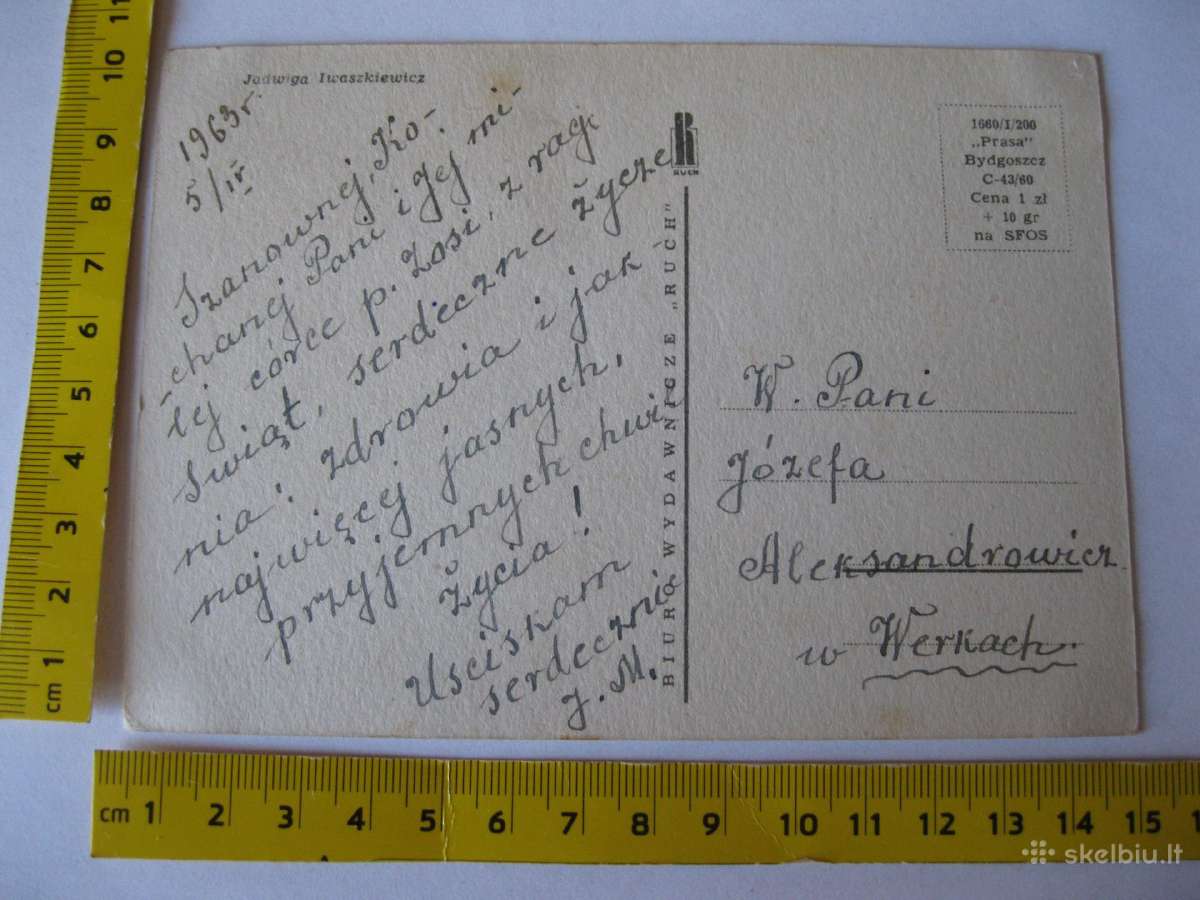 Jadwiga Iwaszkiewicz
1963 r.
5/IV
Szanownej, Ko-
chanej Pani i Jej mi-
łej córce p. Zosi, z racji
Świąt, serdeczne życze
nia: zdrowia i jak
najwięcej jasnych,
przyjemnych chwil
Życia!
Usciskam
serdecznie
J. M.
RUCH
BIURO WYDAWNICZE „RUCH"
1660/I/200
„Prasa"
Bydgoszcz
C-43/60
Cena 1 zł
+ 10 gr
na SFOS
W. Pani
Józefa
Aleksandrowicz
w Werkach.
11
10
9
8
7
6
5
4
3
2
1
cm
cm 1 2 3 4 5 6 7 8 9 10 11 12 13 14 15 1
skelbiu.lt